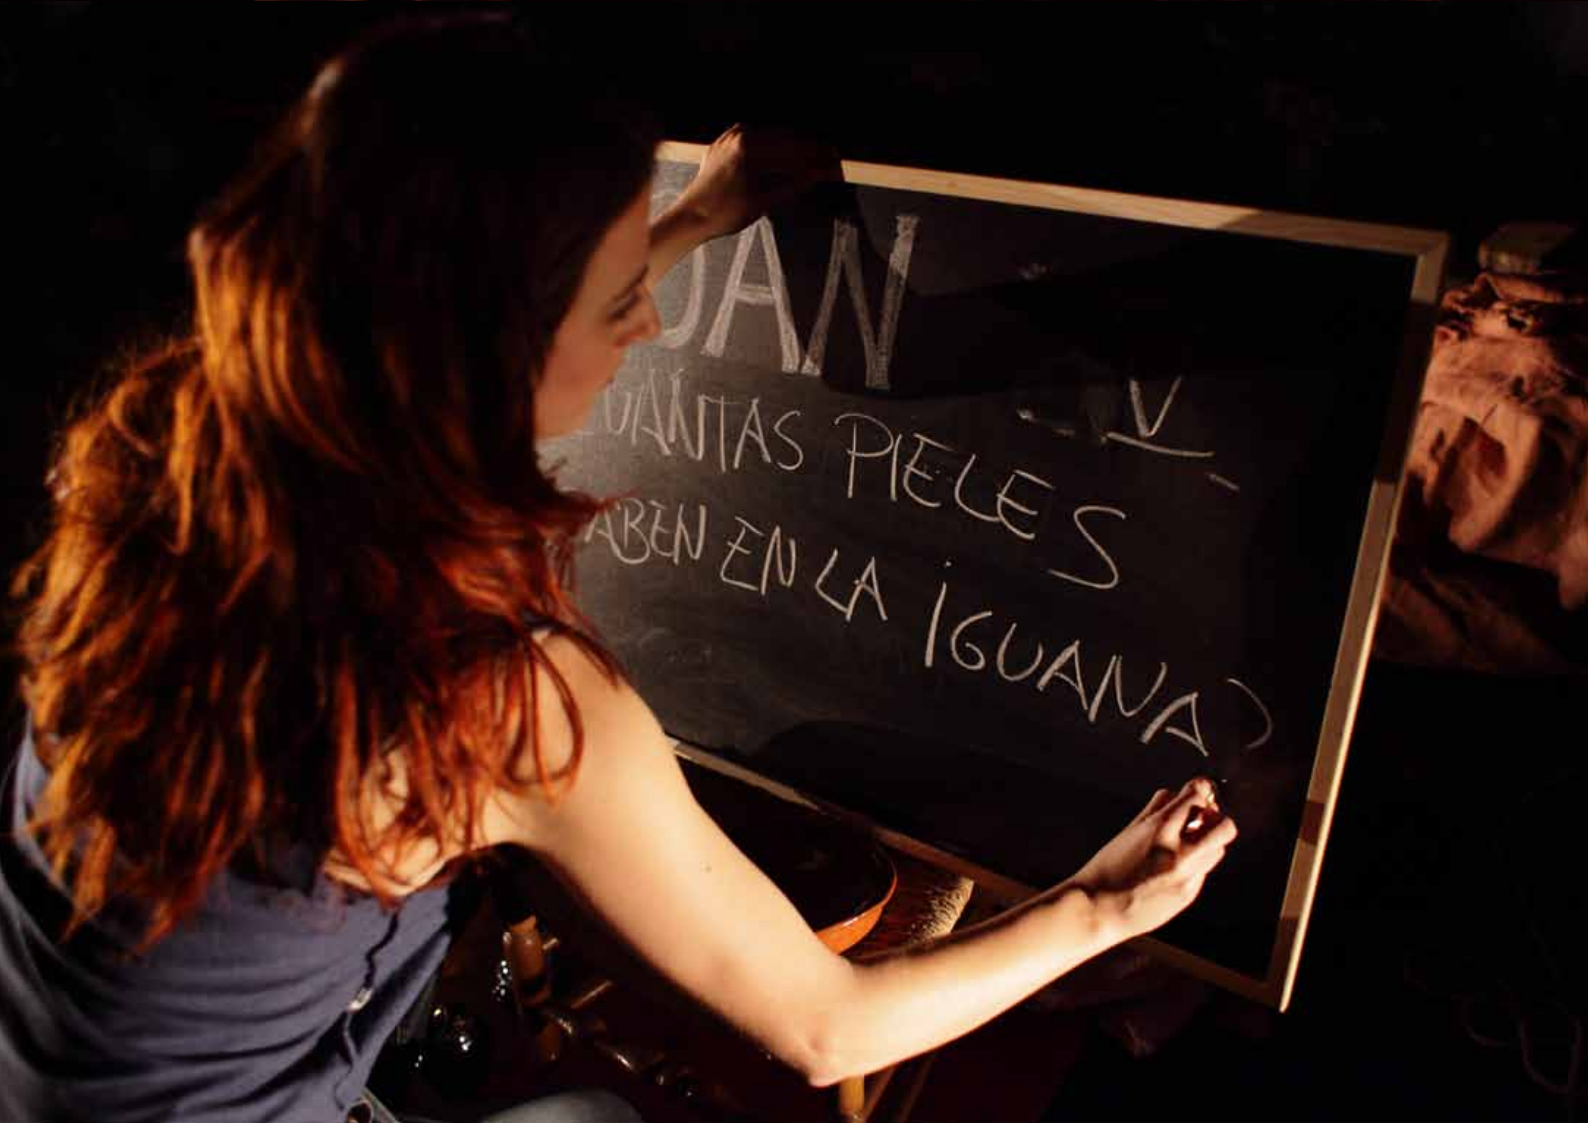 UAN
V
UANTAS PIELES
ABEN EN LA IGUANA?